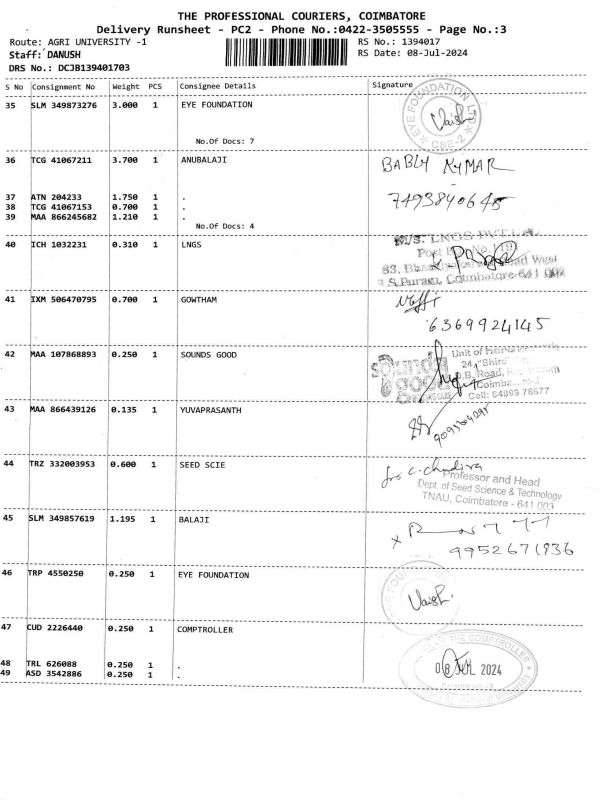 THE PROFESSIONAL COURIERS, COIMBATORE
Delivery Runsheet - PC2 - Phone No.:0422-3505555 - Page No.:3
Route: AGRI UNIVERSITY -1 RS No.: 1394017
Staff: DANUSH RS Date: 08-Jul-2024
DRS No.: DCJB139401703
S No Consignment No Weight PCS Consignee Details Signature
35 SLM 349873276 3.000 1 EYE FOUNDATION
EYE FOUNDATION LTD
Vaish
CBE-2
No.Of Docs: 7
36 TCG 41067211 3.700 1 ANUBALAJI BABLY KUMAR
37 ATN 204233 1.750 1 . 7493840645
38 TCG 41067153 0.700 1 .
39 MAA 866245682 1.210 1 .
No.Of Docs: 4
40 ICH 1032231 0.310 1 LNGS M/S. LNGS PVT.
Post No.
83,
R.S.Puram, Coimbatore-641 002
41 IXM 506470795 0.700 1 GOWTHAM
6369924145
42 MAA 107868893 0.250 1 SOUNDS GOOD sounds good
Unit of
24, "Shirdi"
D.B. Road,
Coimba
Cell: 84899 78677
43 MAA 866439126 0.135 1 YUVAPRASANTH
44 TRZ 332003953 0.600 1 SEED SCIE for C. Chandira
Professor and Head
Dept. of Seed Science & Technology
TNAU, Coimbatore - 641 003
45 SLM 349857619 1.195 1 BALAJI x
9952671936
46 TRP 4550250 0.250 1 EYE FOUNDATION EYE FOUN
Vaish.
47 CUD 2226440 0.250 1 COMPTROLLER THE COMPTROLLER
48 TRL 626088 0.250 1 . 08 JUL 2024
49 ASD 3542886 0.250 1 .